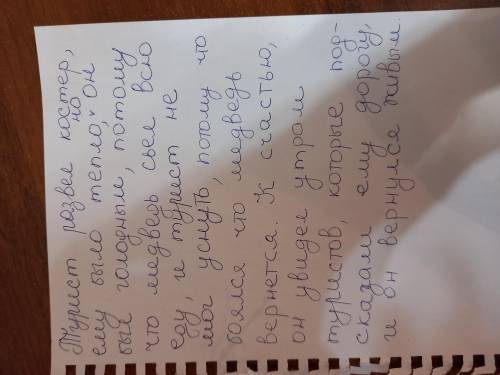 Турист развел костер,
ему было тепло, но он
был голодным, потому
что медведь съел всю
еду, и турист не
мог уснуть потому что
боялся что медведь
вернется. К счастью,
он увидел утром
туристов, которые под-
сказали ему дорогу,
и он вернулся живым.